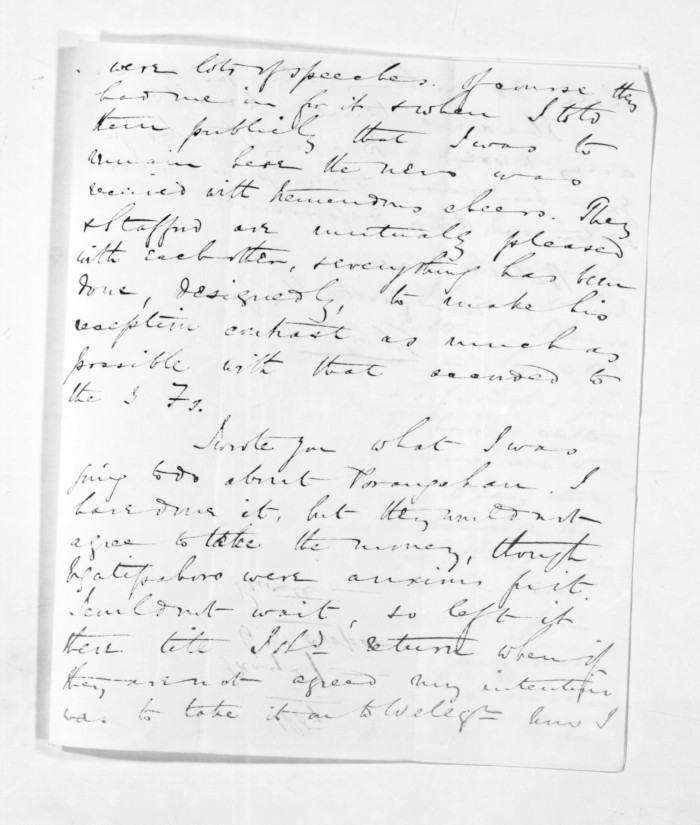 were lots of speeches. Of course they
had me in for it & when I told
them publicly that I was to
remain here the news was
received with tremendous cheers. They
& Stafford are mutually pleased
with each other, & everything has been
done, designedly, to make his
reception contrast as much as
possible with that accorded to
the 3 Fs.
I wrote you what I was
going to do about Porangahau. I
have done it, but they would not
agree to take the money, though
Ngatipaboro were anxious for it.
I could not wait, so left it
there till I shd return when if
they are not agreed my intention
was to take it on to Wellgtn. Now I